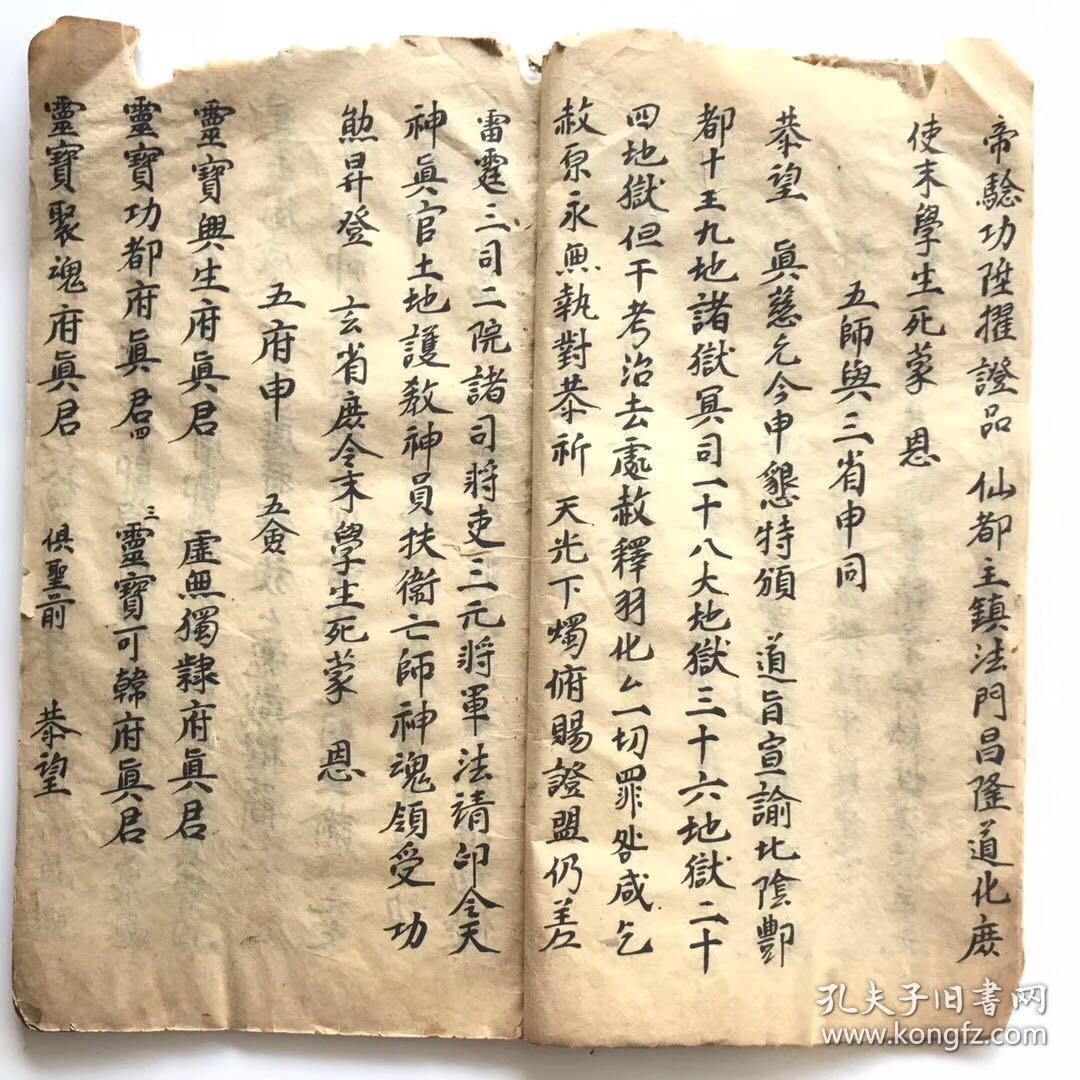 帝驗功陞擢證品 仙都主鎮法門昌隆道化庶
使末學生死蒙 恩
五師與三省申同
恭望 眞慈允今申懇特頒 道旨宣諭北陰酆
都十王九地諸獄冥司一十八大地獄三十六地獄二十
四地獄但干考治去處赦釋羽化厶一切罪咎咸乞
赦原永無執對恭祈 天光下燭俯賜證盟仍差
雷霆三司二院諸司將吏三元將軍法靖印令天
神眞官土地護教神員扶衛亡師神魂領受功
勉昇登 玄省庶令末學生死蒙 恩
五府申 五僉
靈寶興生府眞君 虛無獨隸府眞君
靈寶功都府眞君四 三靈寶可韓府眞君
靈寶聚魂府眞君 俱聖前 恭望
孔夫子旧书网
www.kongfz.com